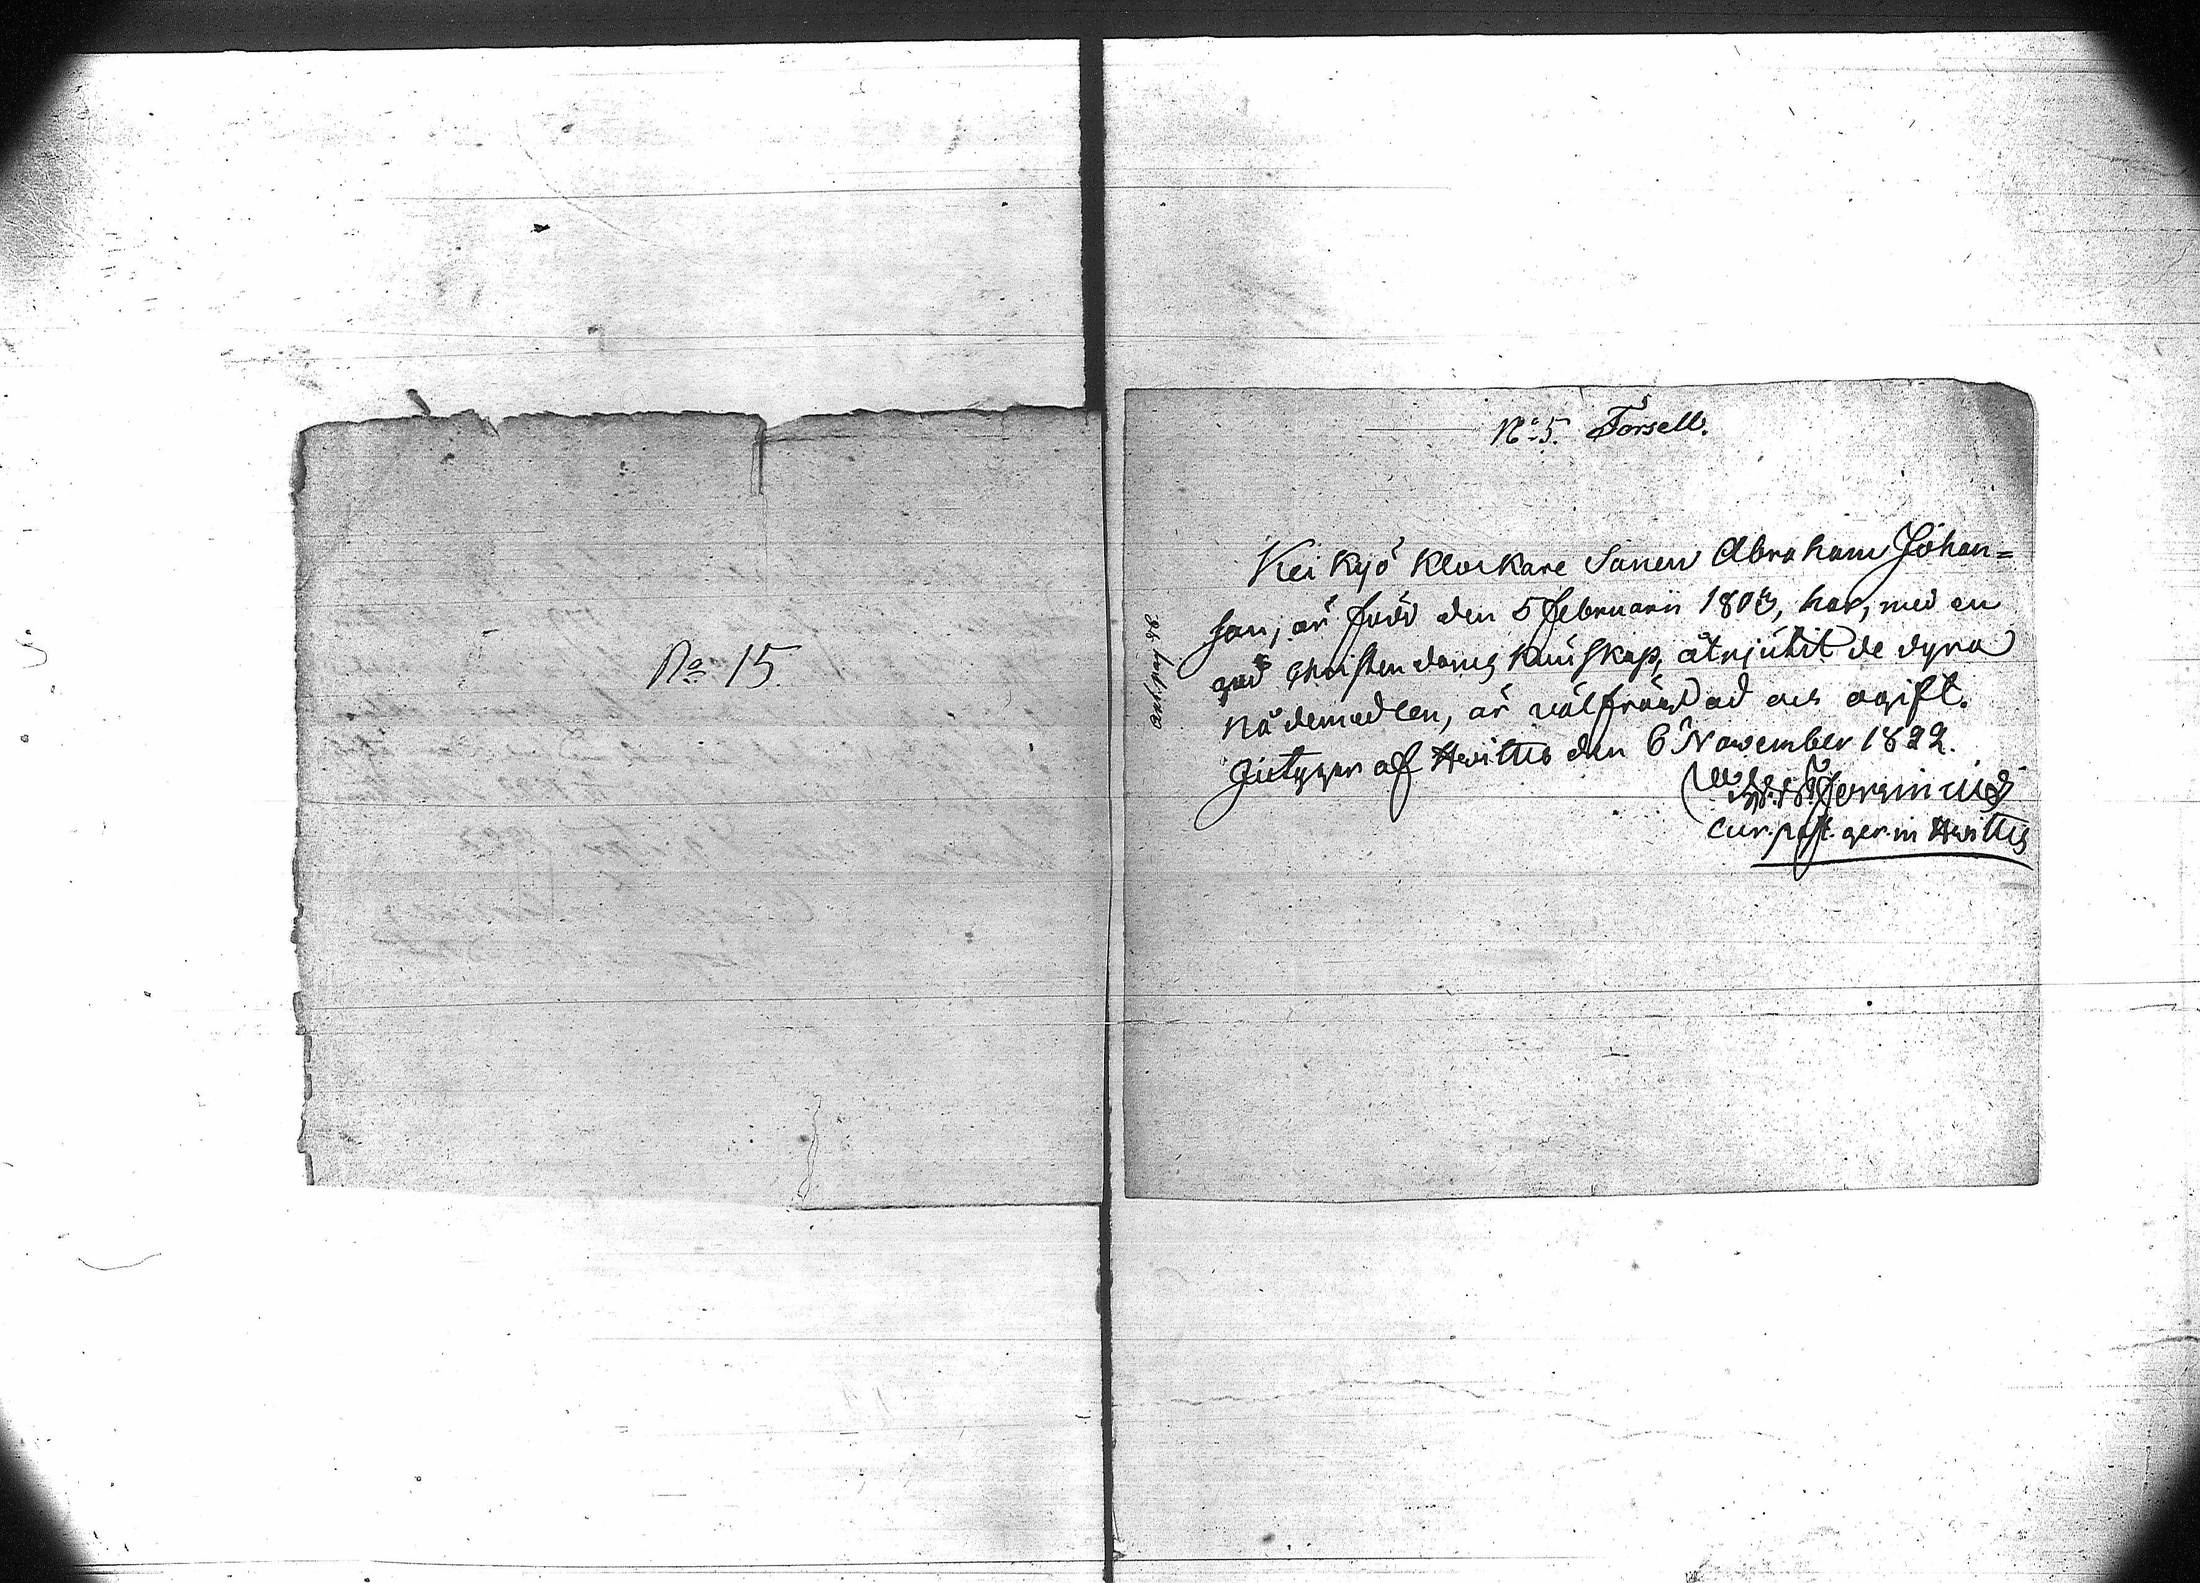 No 15.
No 5. Forsell.
Keikyö Klockare Sonen Abraham Johan=
son, är född den 5 Februarii 1803, har, med en
god Christendoms kunskap, åtnjutit de dyra
Nådemedlen, är wälfräjdad och ogift.
Betygar af Hwittis den 6 November 1822.
Cur. past. ger. in Hwittis
ant. pag 98.